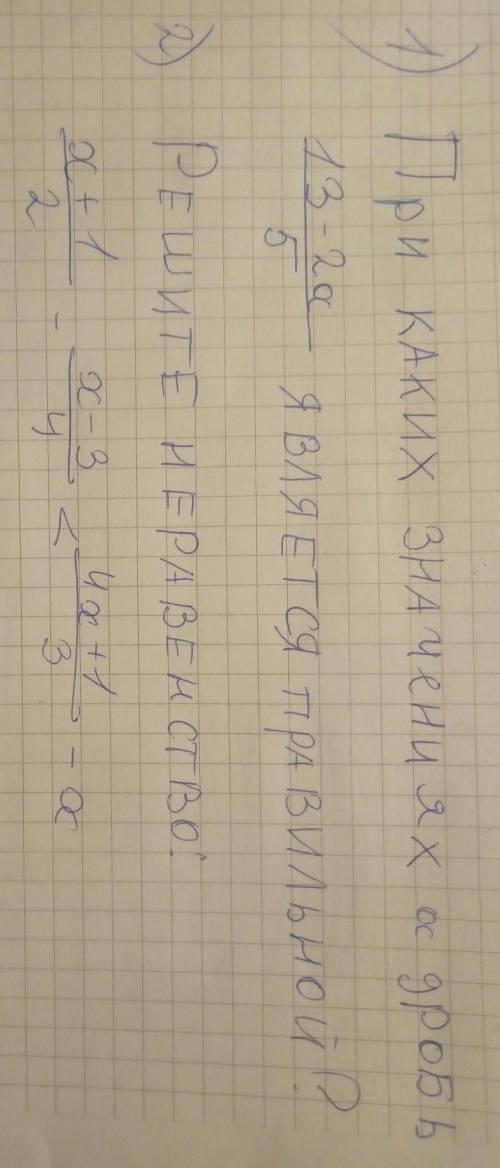 1) При каких значениях a дробь
13-2a/5 является правильной?
2) Решите неравенство:
x+1/2 - x-3/4 < 4x+1/3 - x